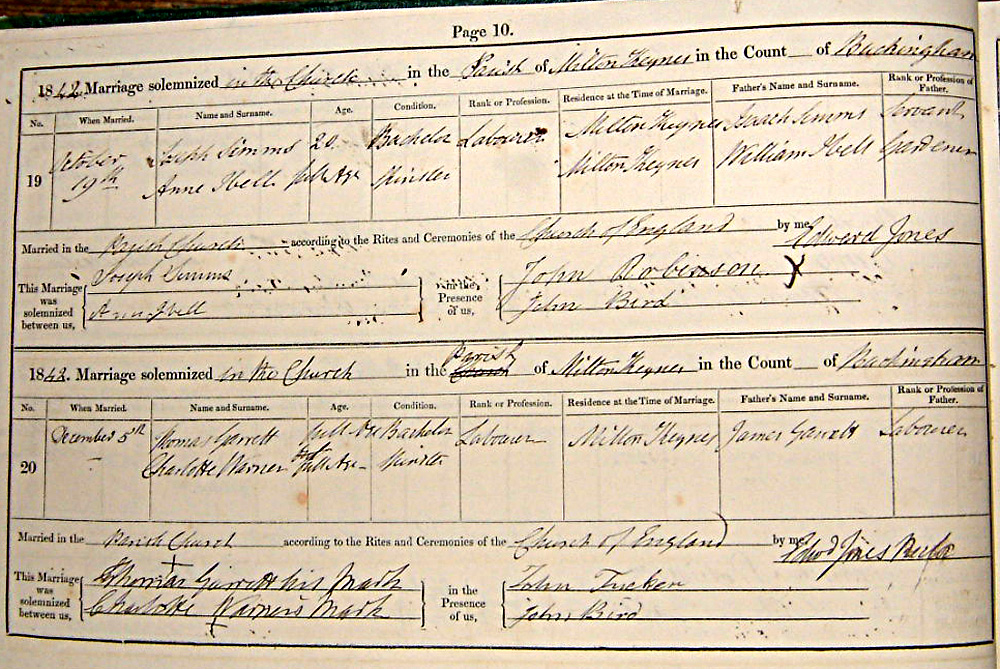 Page 10.
1842. Marriage solemnized in the Church in the Parish of Milton Keynes in the Count of Buckingham
No. When Married. Name and Surname. Age. Condition. Rank or Profession. Residence at the Time of Marriage. Father's Name and Surname. Rank or Profession of Father.
19 October 19th Joseph Simms 20 Bachelor Labourer Milton Keynes Simms Servant
Anne Ibell full Age Spinster Milton Keynes William Ibell Gardener
Married in the Parish Church according to the Rites and Ceremonies of the Church of England by me Edward Jones
This Marriage was solemnized between us, Joseph Simms in the Presence of us, John Robinson
Ann Ibell John Bird
1842. Marriage solemnized in the Church in the Parish of Milton Keynes in the Count of Buckingham
No. When Married. Name and Surname. Age. Condition. Rank or Profession. Residence at the Time of Marriage. Father's Name and Surname. Rank or Profession of Father.
20 December 5th Thomas Garrett full Age Bachelor Labourer Milton Keynes James Garrett Labourer
Charlotte Warner full Age Spinster
Married in the Parish Church according to the Rites and Ceremonies of the Church of England by me Edwd Jones Rector
This Marriage was solemnized between us, Thomas Garrett his Mark in the Presence of us, John Tucker
Charlotte Warner's Mark John Bird